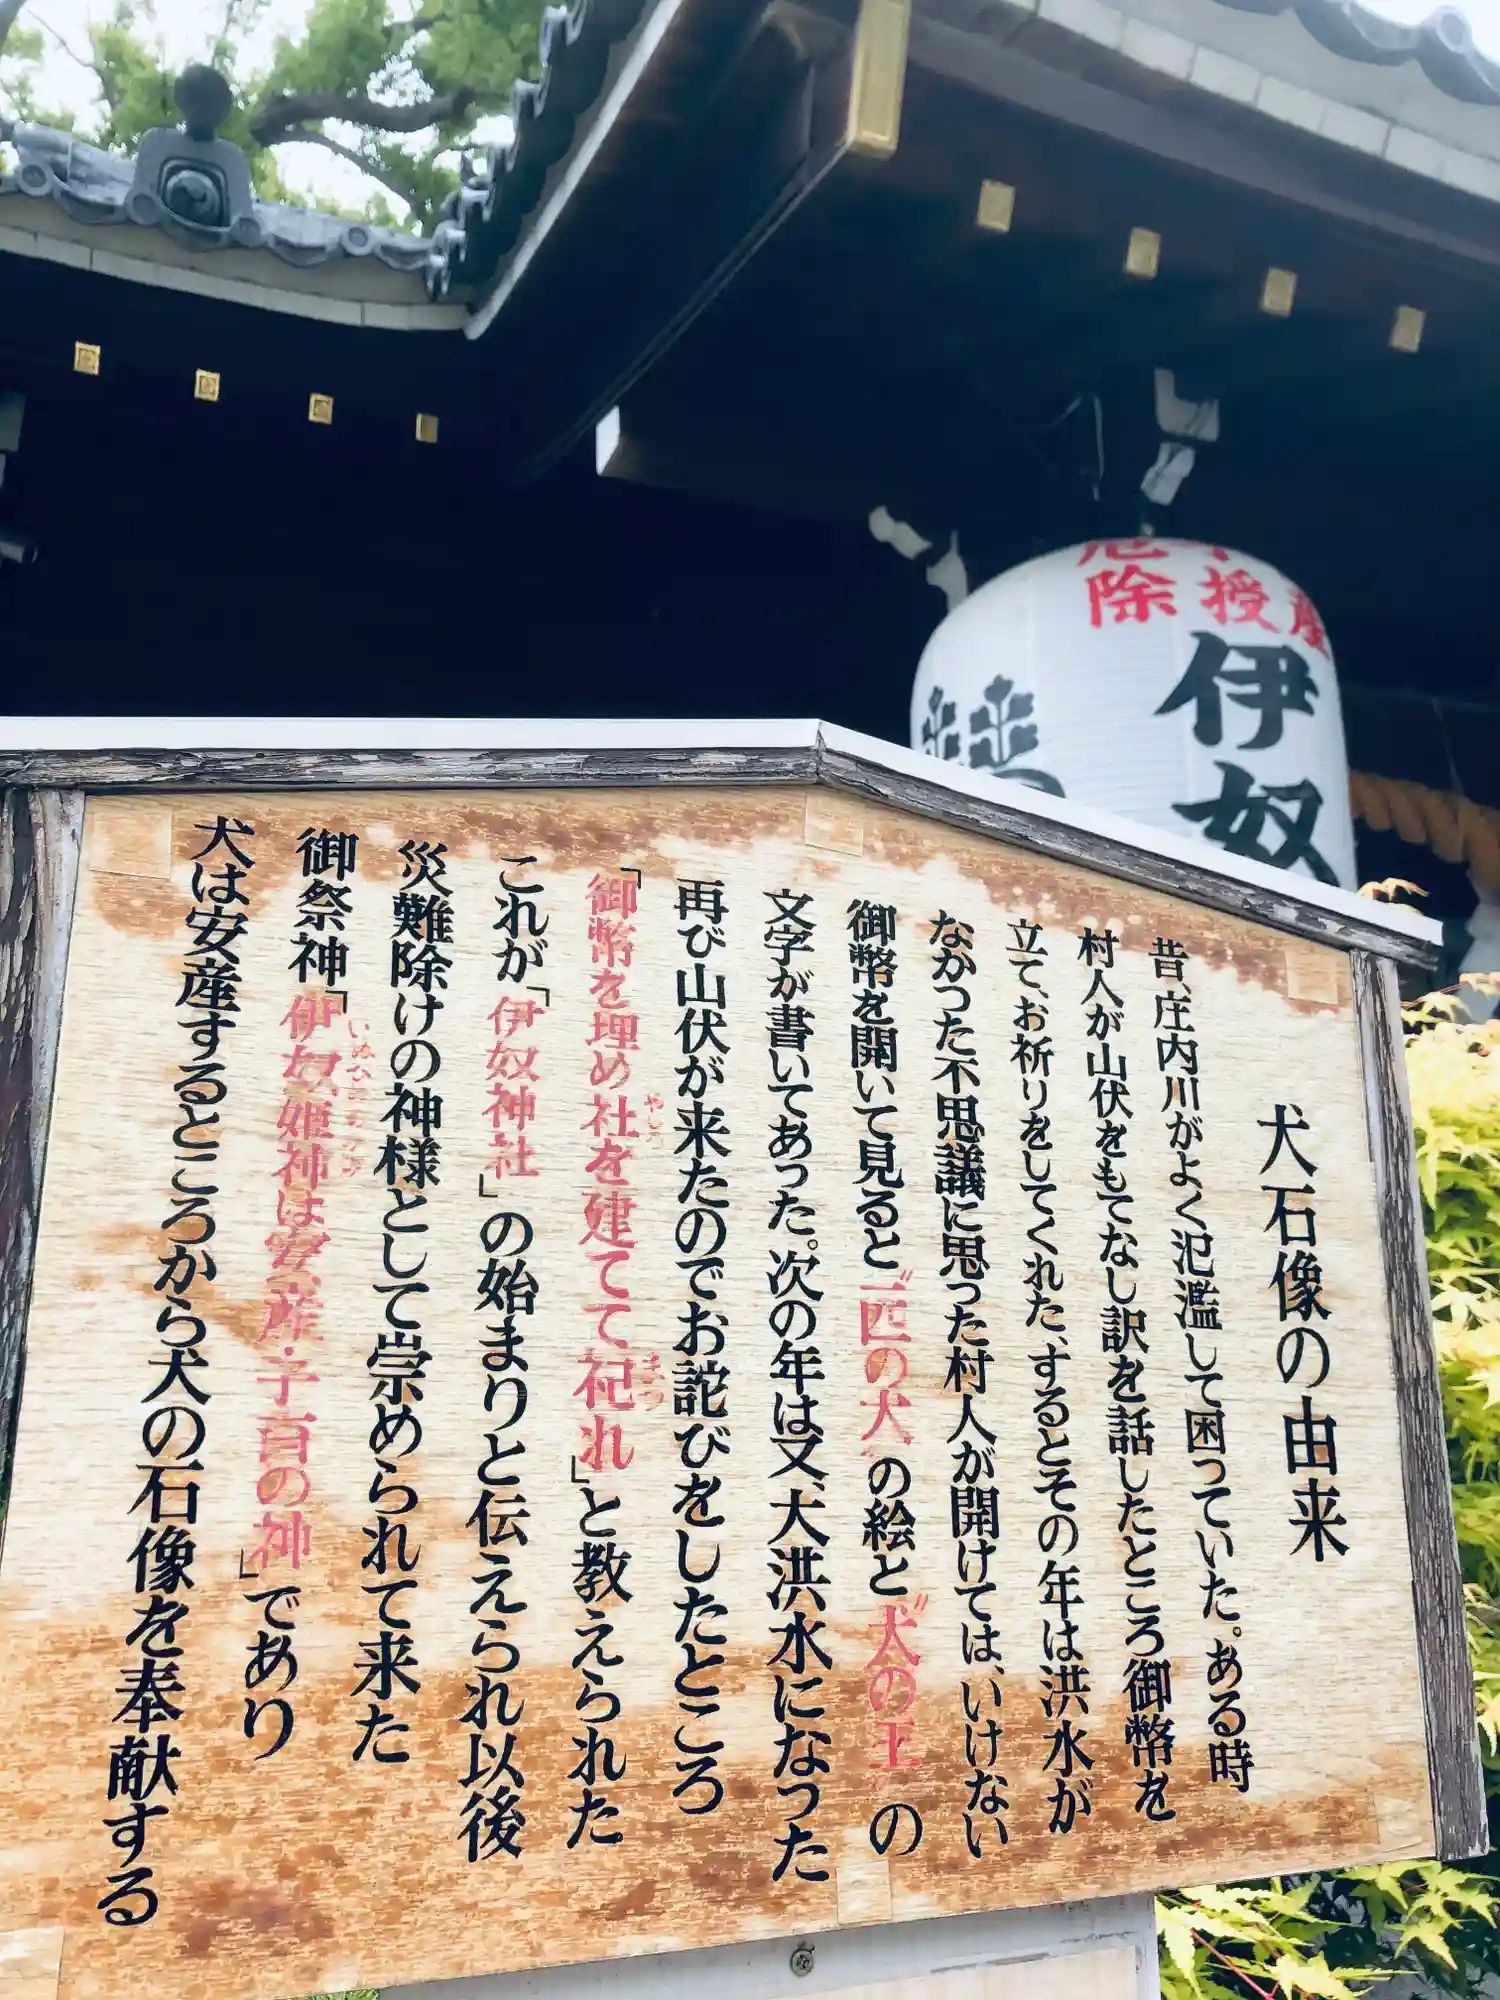 犬石像の由来
昔、庄内川がよく氾濫して困っていた。ある時
村人が山伏をもてなし訳を話したところ御幣を
立て、お祈りをしてくれた、するとその年は洪水が
なかった不思議に思った村人が開けては、いけない
御幣を開いて見ると“一匹の犬”の絵と“犬の王”の
文字が書いてあった。次の年は又、大洪水になった
再び山伏が来たのでお詫びをしたところ
「御幣を埋め社を建てて祀れ」と教えられた
やしろ
まつ
これが「伊奴神社」の始まりと伝えられ以後
災難除けの神様として崇められて来た
御祭神「伊奴姫神は安産・子育の神」であり
犬は安産するところから犬の石像を奉献する
授産
厄除
伊奴